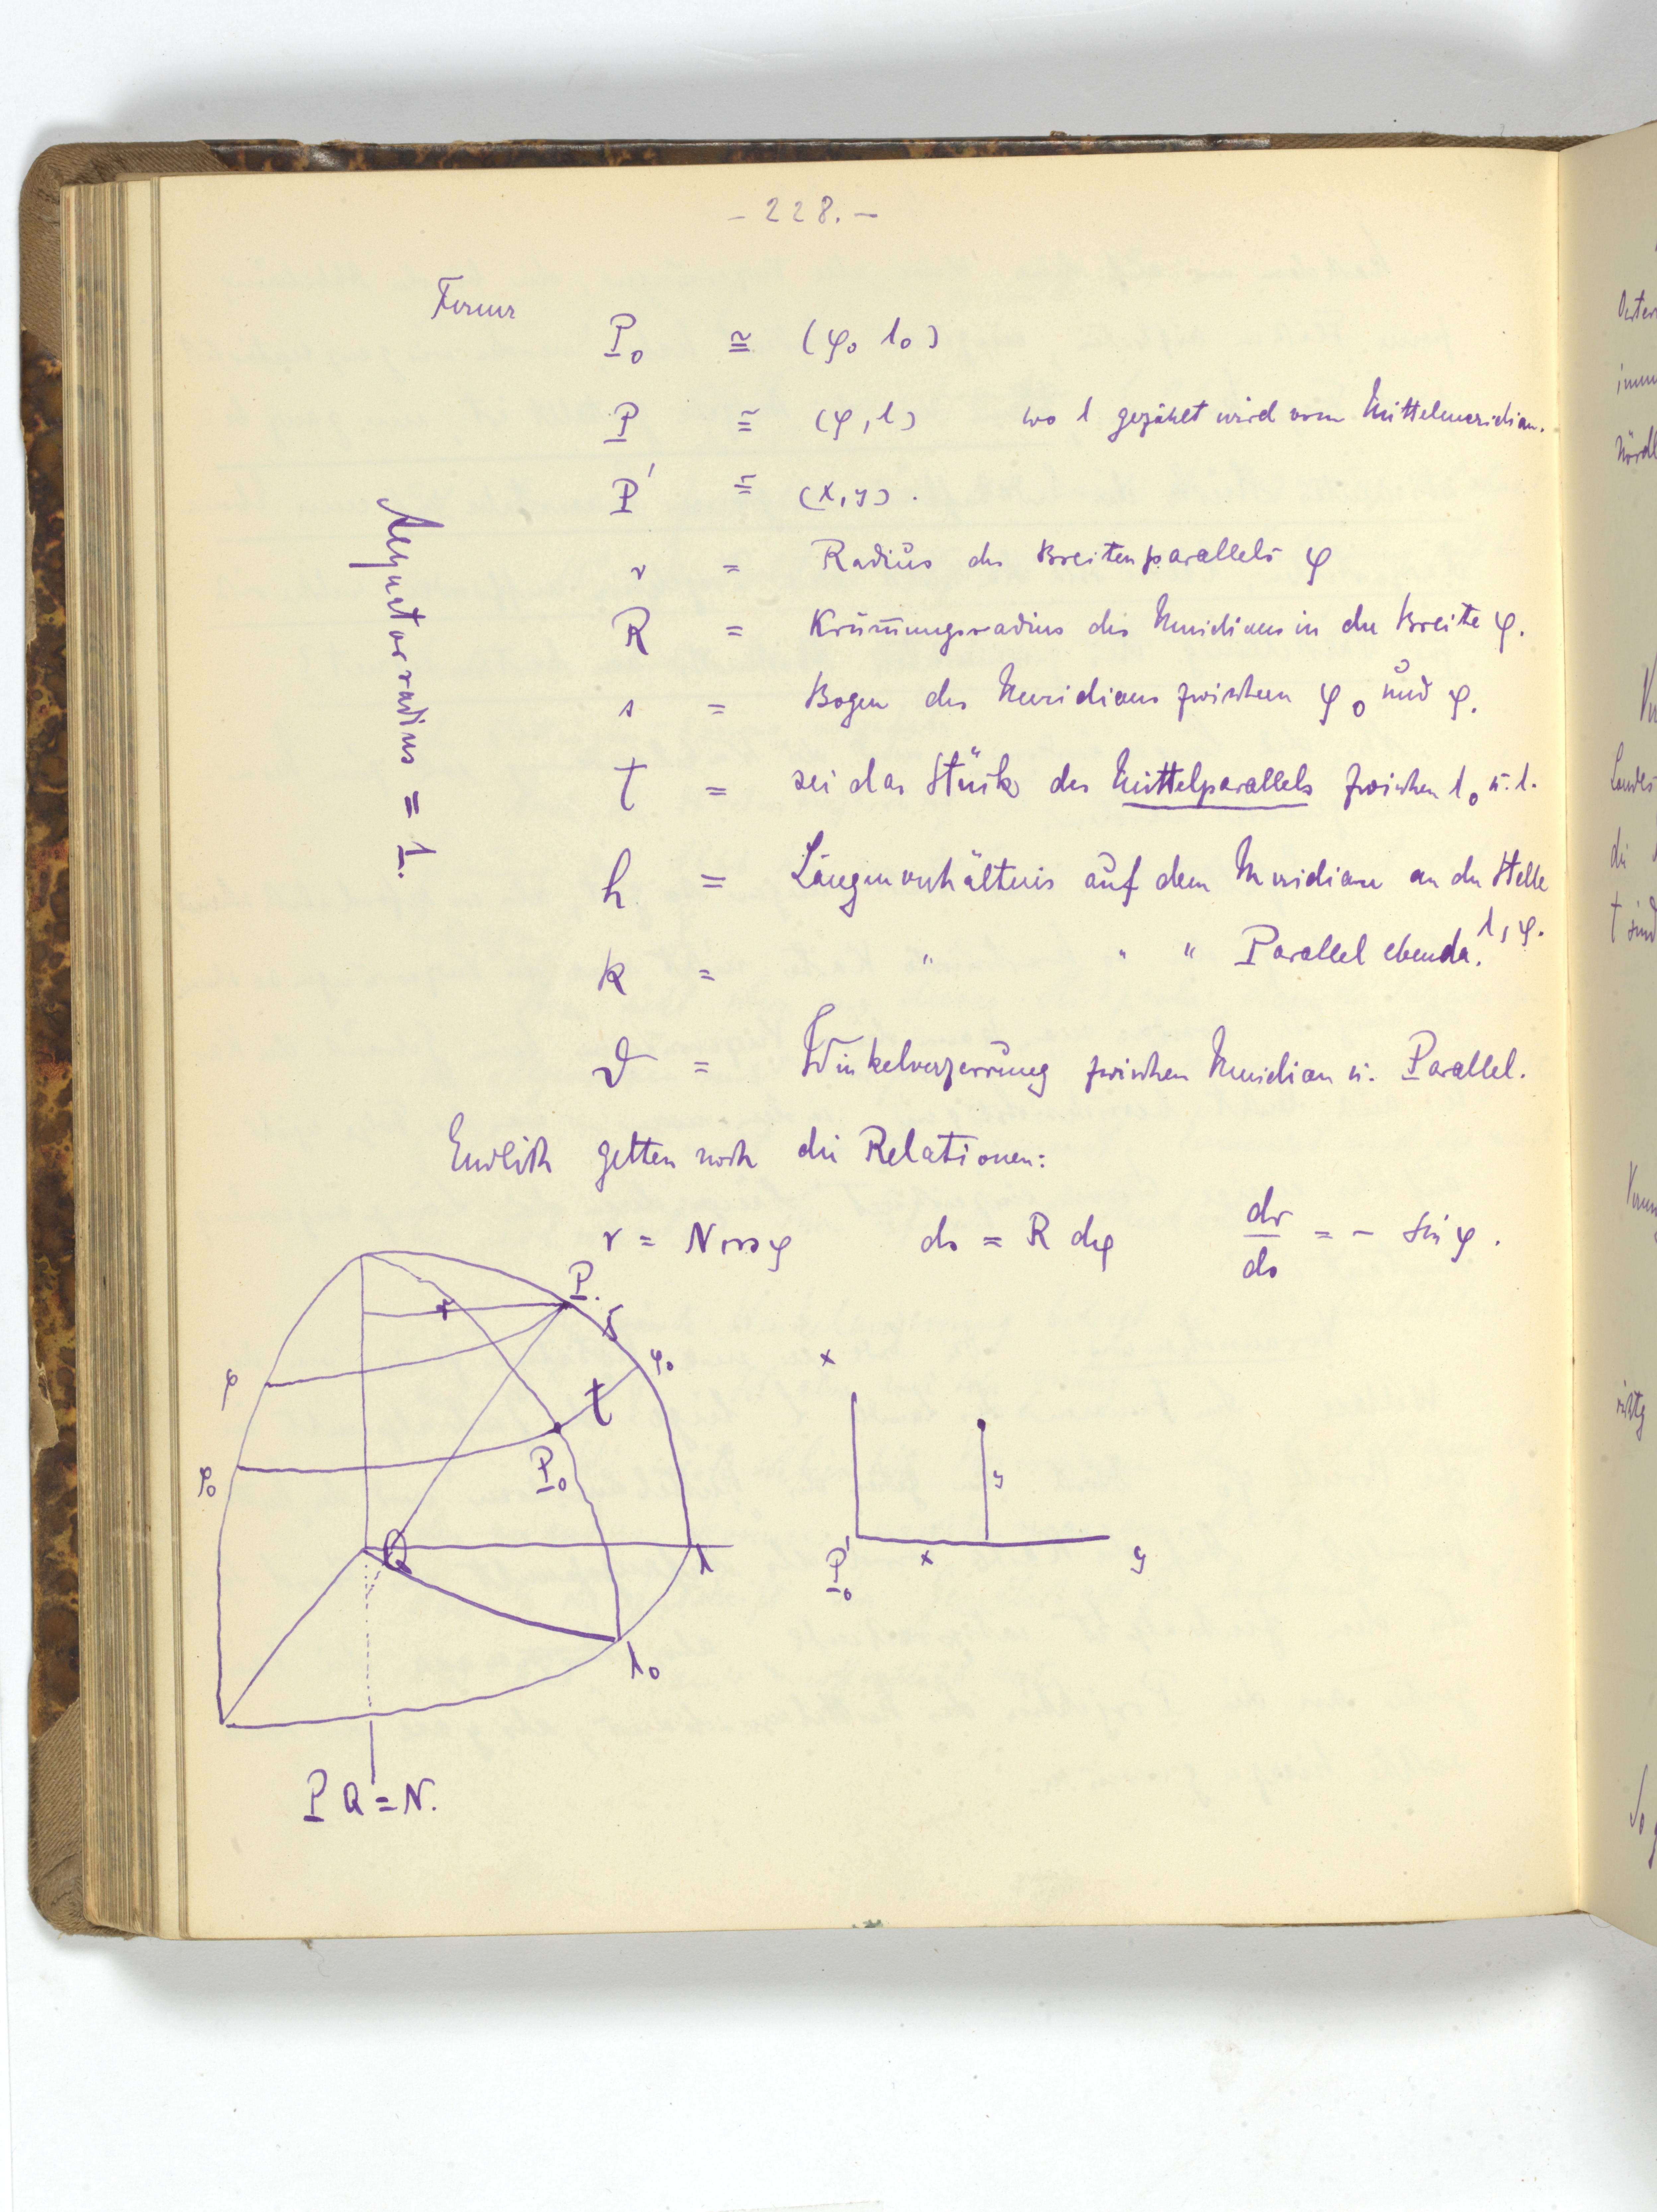 - 228. -
Ferner
P₀ ≅ (φ₀ λ₀)
P ≅ (φ, λ) wo λ gezählt wird vom Mittelmeridian.
P' ≅ (x, y).
r = Radius des Breitenparallels φ
R = Krümmungsradius des Meridians in der Breite φ.
s = Bogen des Meridians zwischen φ₀ und φ.
t = sei das Stück des Mittelparallels zwischen λ₀ u. λ.
h = Längenverhältnis auf dem Meridian an der Stelle
λ, φ.
k = " " " Parallel ebenda.
ϑ = Winkelverzerrung zwischen Meridian u. Parallel.
Aequatorradius = 1.
Endlich gelten noch die Relationen:
r = N cos φ ds = R dφ dr/ds = - sin φ.
P.
r
s
φ
φ₀
t
P₀
φ₀
Q
λ
λ₀
PQ = N.
x
y
P₀'
x
y